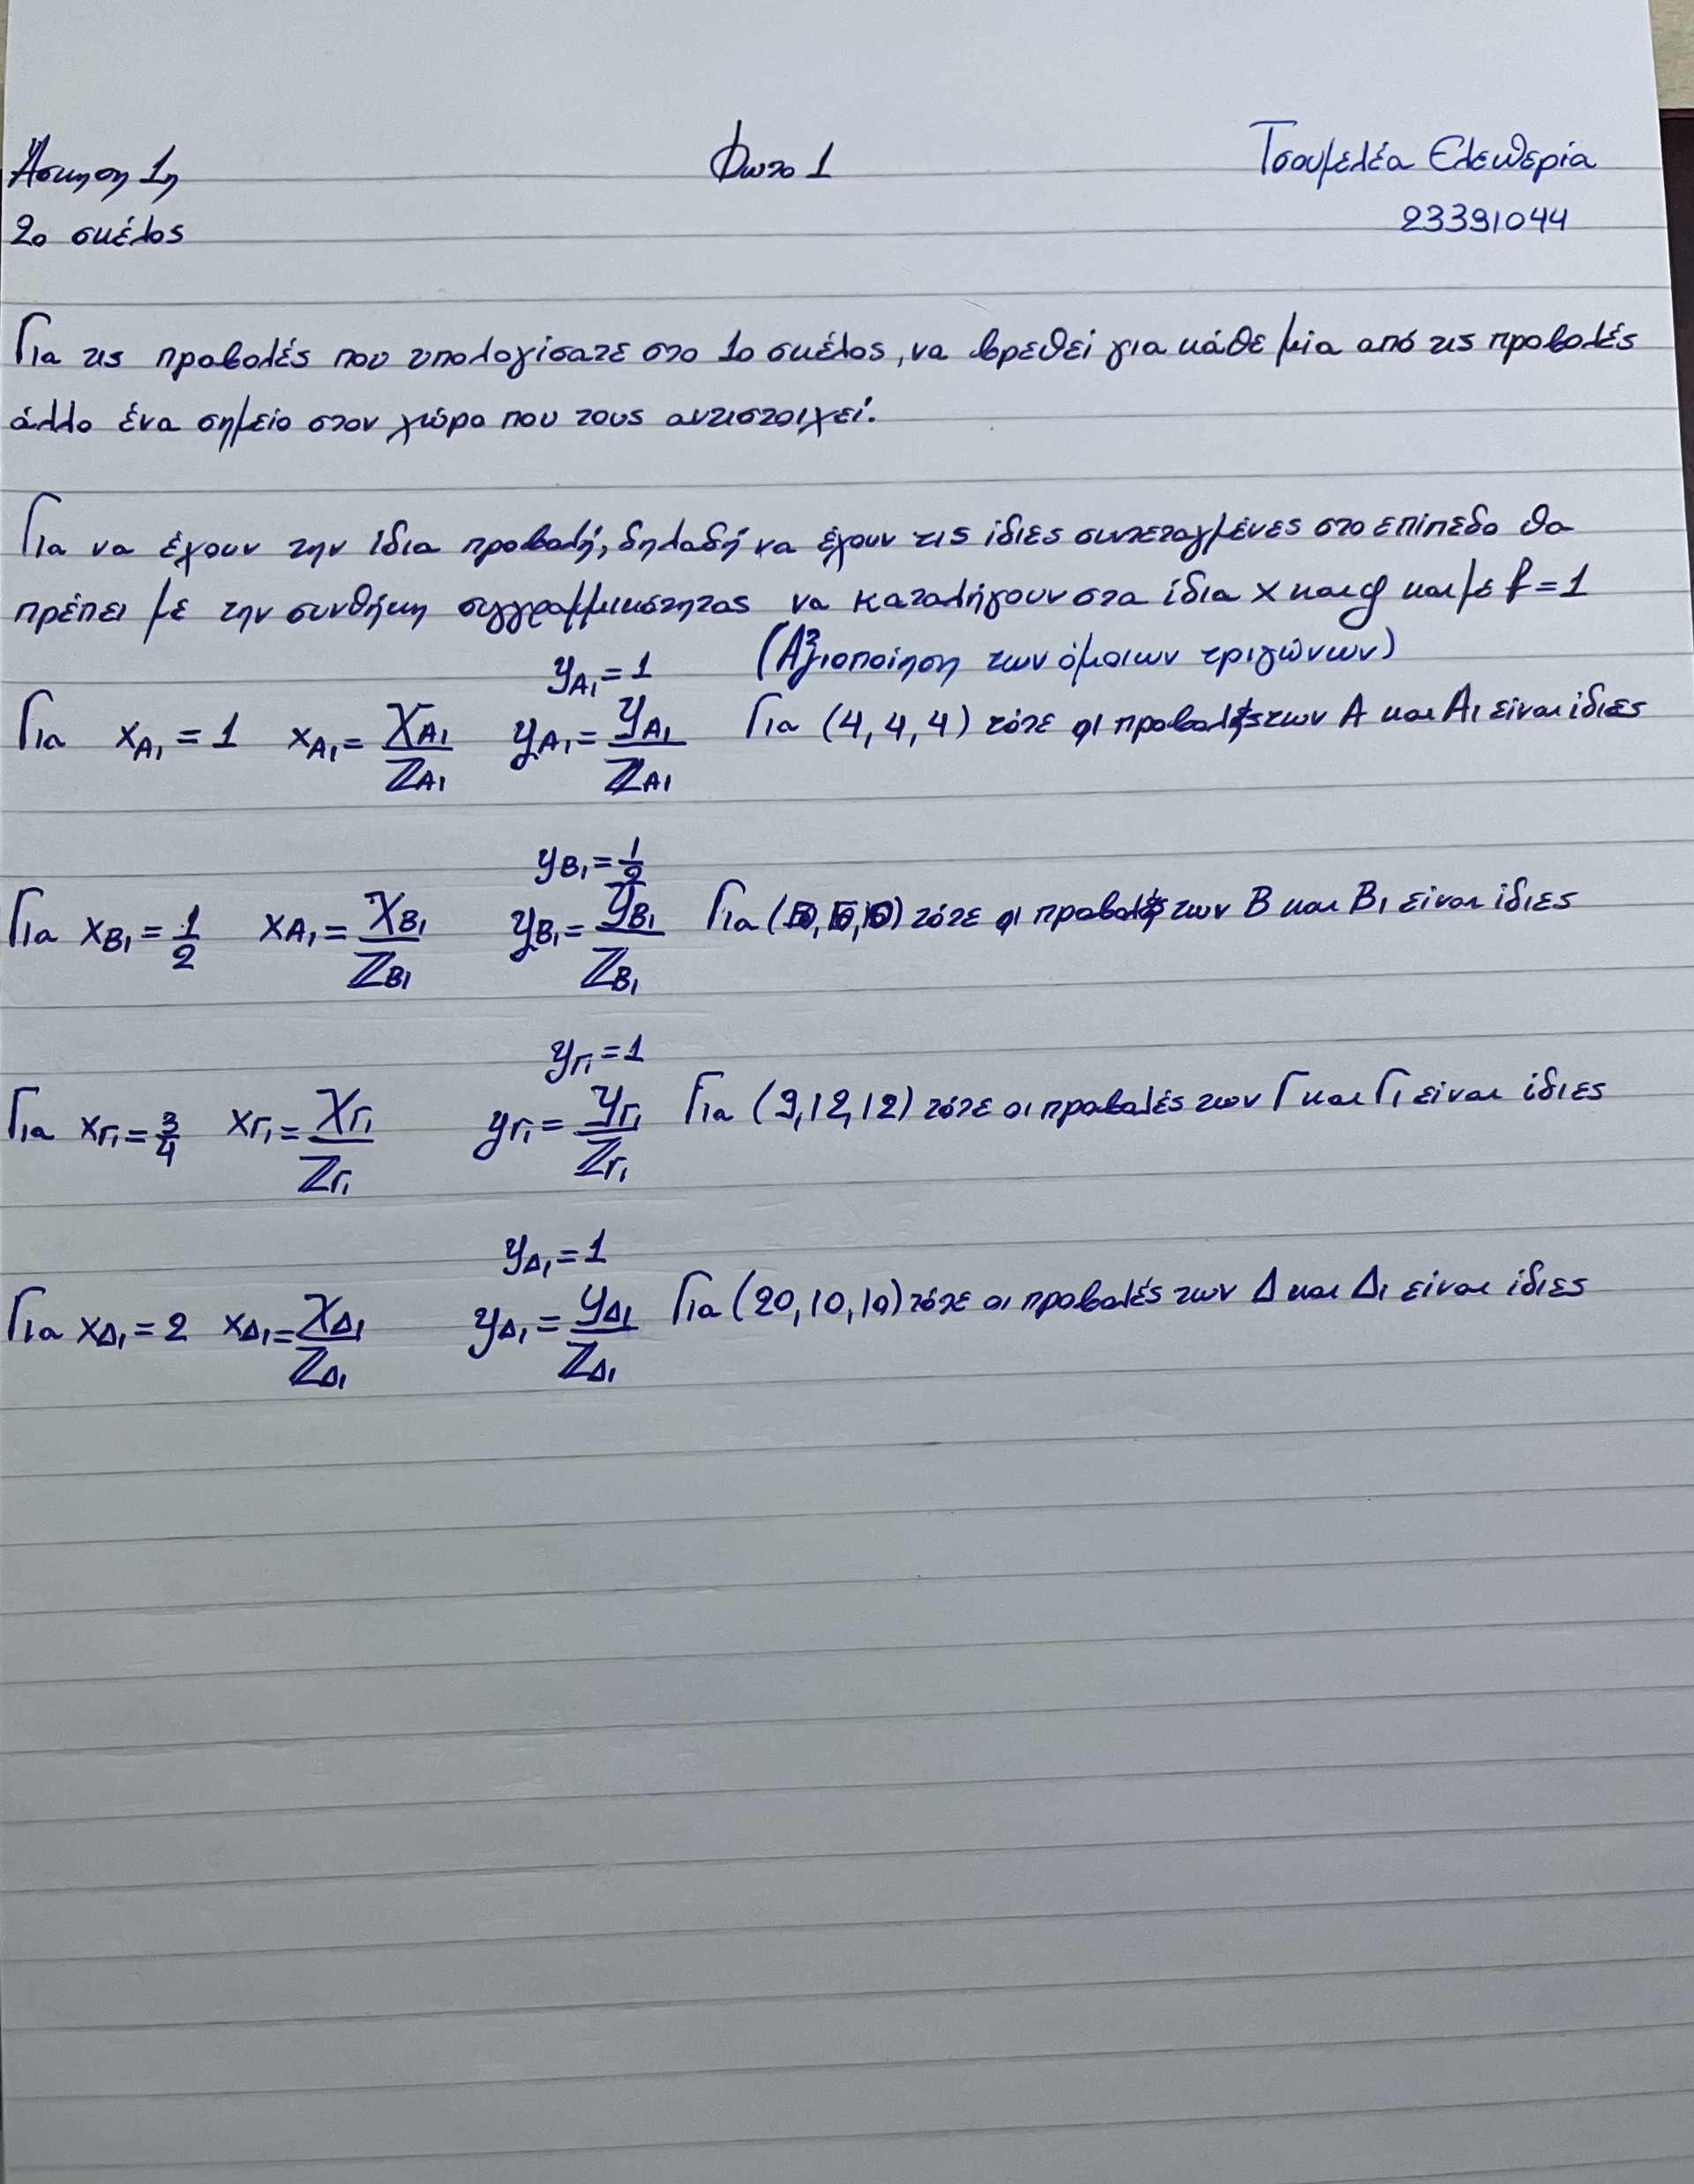 Άσκηση 1η Φωτο 1 Τσουμελέα Ελευθερία
2ο σκέλος 23391044
Για τις προβολές που υπολογίσατε στο 1ο σκέλος, να βρεθεί για κάθε μία από τις προβολές
άλλο ένα σημείο στον χώρο που τους αντιστοιχεί.
Για να έχουν την ίδια προβολή, δηλαδή να έχουν τις ίδιες συντεταγμένες στο επίπεδο θα
πρέπει με την συνθήκη συγγραμμικότητας να καταλήγουν στα ίδια x και y και με f = 1
y_A₁ = 1 (Αξιοποίηση των όμοιων τριγώνων)
Για x_A₁ = 1 x_A₁ = X_A₁/Z_A₁ y_A₁ = Y_A₁/Z_A₁ Για (4, 4, 4) τότε οι προβολές των Α και Α₁ είναι ίδιες
y_B₁ = 1/2
Για x_B₁ = 1/2 x_A₁ = X_B₁/Z_B₁ y_B₁ = Y_B₁/Z_B₁ Για τότε οι προβολές των Β και Β₁ είναι ίδιες
y_Γ₁ = 1
Για x_Γ₁ = 3/4 x_Γ₁ = X_Γ₁/Z_Γ₁ y_Γ₁ = Y_Γ₁/Z_Γ₁ Για (9, 12, 12) τότε οι προβολές των Γ και Γ₁ είναι ίδιες
y_Δ₁ = 1
Για x_Δ₁ = 2 x_Δ₁ = X_Δ₁/Z_Δ₁ y_Δ₁ = Y_Δ₁/Z_Δ₁ Για (20, 10, 10) τότε οι προβολές των Δ και Δ₁ είναι ίδιες